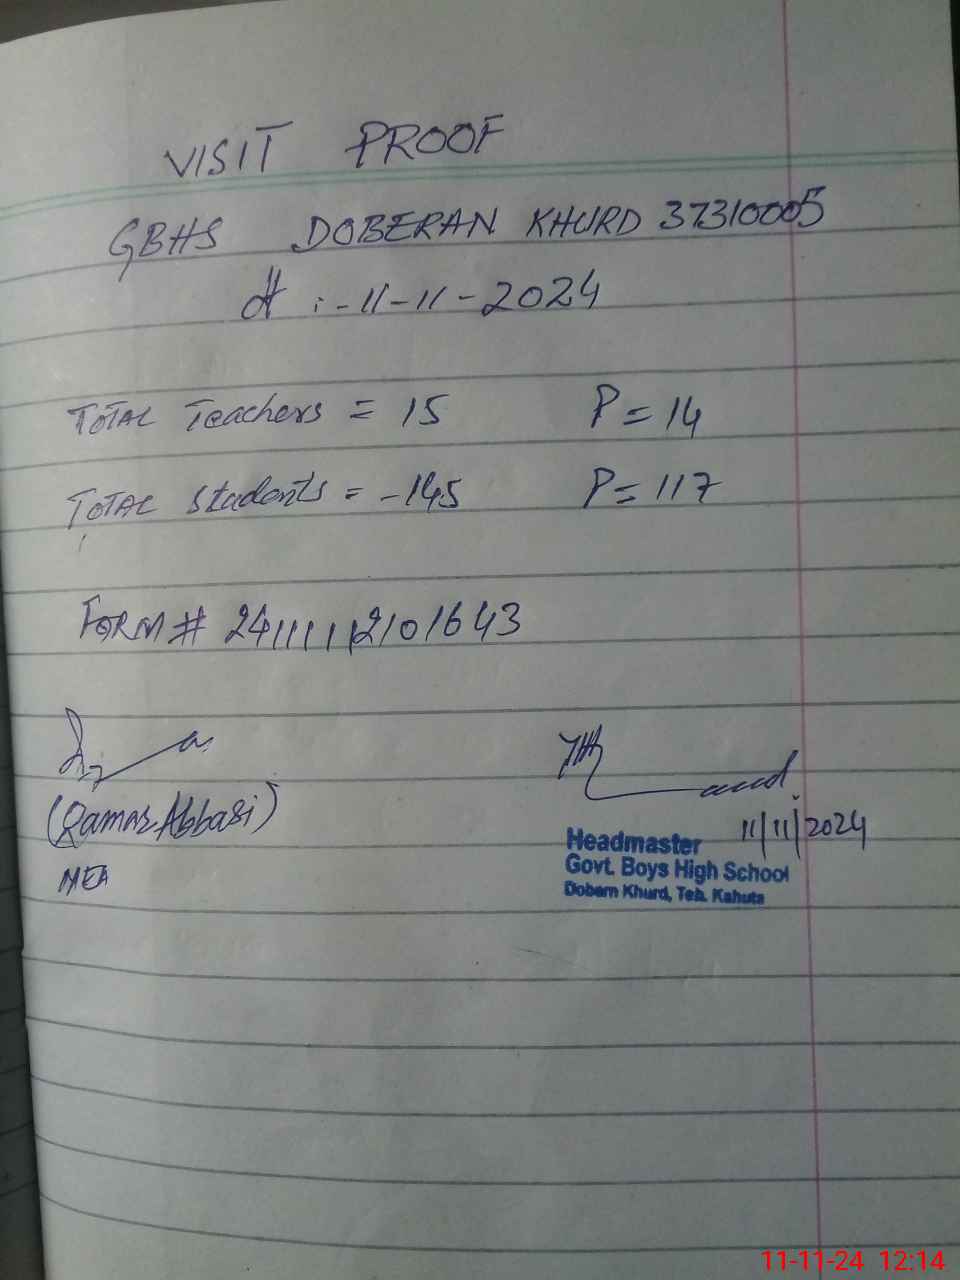 VISIT PROOF
GBHS DOBERAN KHURD 37310005
dt :- 11-11-2024
TOTAL Teachers = 15 P = 14
TOTAL Students = - 145 P = 117
FORM #
(Qamar Abbasi)
MEA
11/11/2024
Headmaster
Govt. Boys High School
Dobern Khurd, Teh. Kahuta
11-11-24 12:14